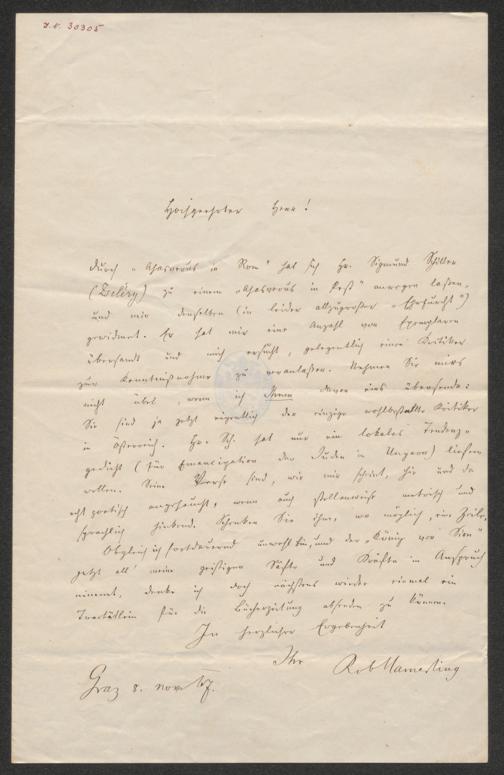 J.N. 30305
Hochgeehrter Herr!
Durch „Ahasverus in Rom" hat sich Hr. Sigmund Schiller
(Zeléry) zu einem „Ahasverus in Pest" anregen lassen,
und mir denselben (in leider allzugroßer „Ehrfurcht")
gewidmet. Er hat mir eine Anzahl von Exemplaren
übersandt und mich ersucht, gelegentlich einen Kritiker
zur Kenntnißnahme zu veranlassen. Nehmen Sie mirs
nicht übel, wenn ich Ihnen davon eines übersende:
Sie sind ja jetzt eigentlich der einzige wohlbestallte Kritiker
in Österreich. Hr. Sch. hat nur ein lokales Tendenz-
gedicht (für Emancipation der Juden in Ungarn) liefern
wollen. Seine Verse sind, wie mir scheint, hie und da
echt poetisch angehaucht, wenn auch stellenweise metrisch und
sprachlich hinkend. Schenken Sie ihm, wo möglich, ein Zeile.
Obgleich ich fortdauernd unwohl bin, und der „König von Sion"
jetzt all' meine geistigen Säfte und Kräfte in Anspruch
nimmt, denke ich doch nächstens wieder einmal ein
Traktätlein für die Bücherzeitung absenden zu können.
In herzlicher Ergebenheit
Ihr Rob Hamerling
Graz 8. Nov. 67.